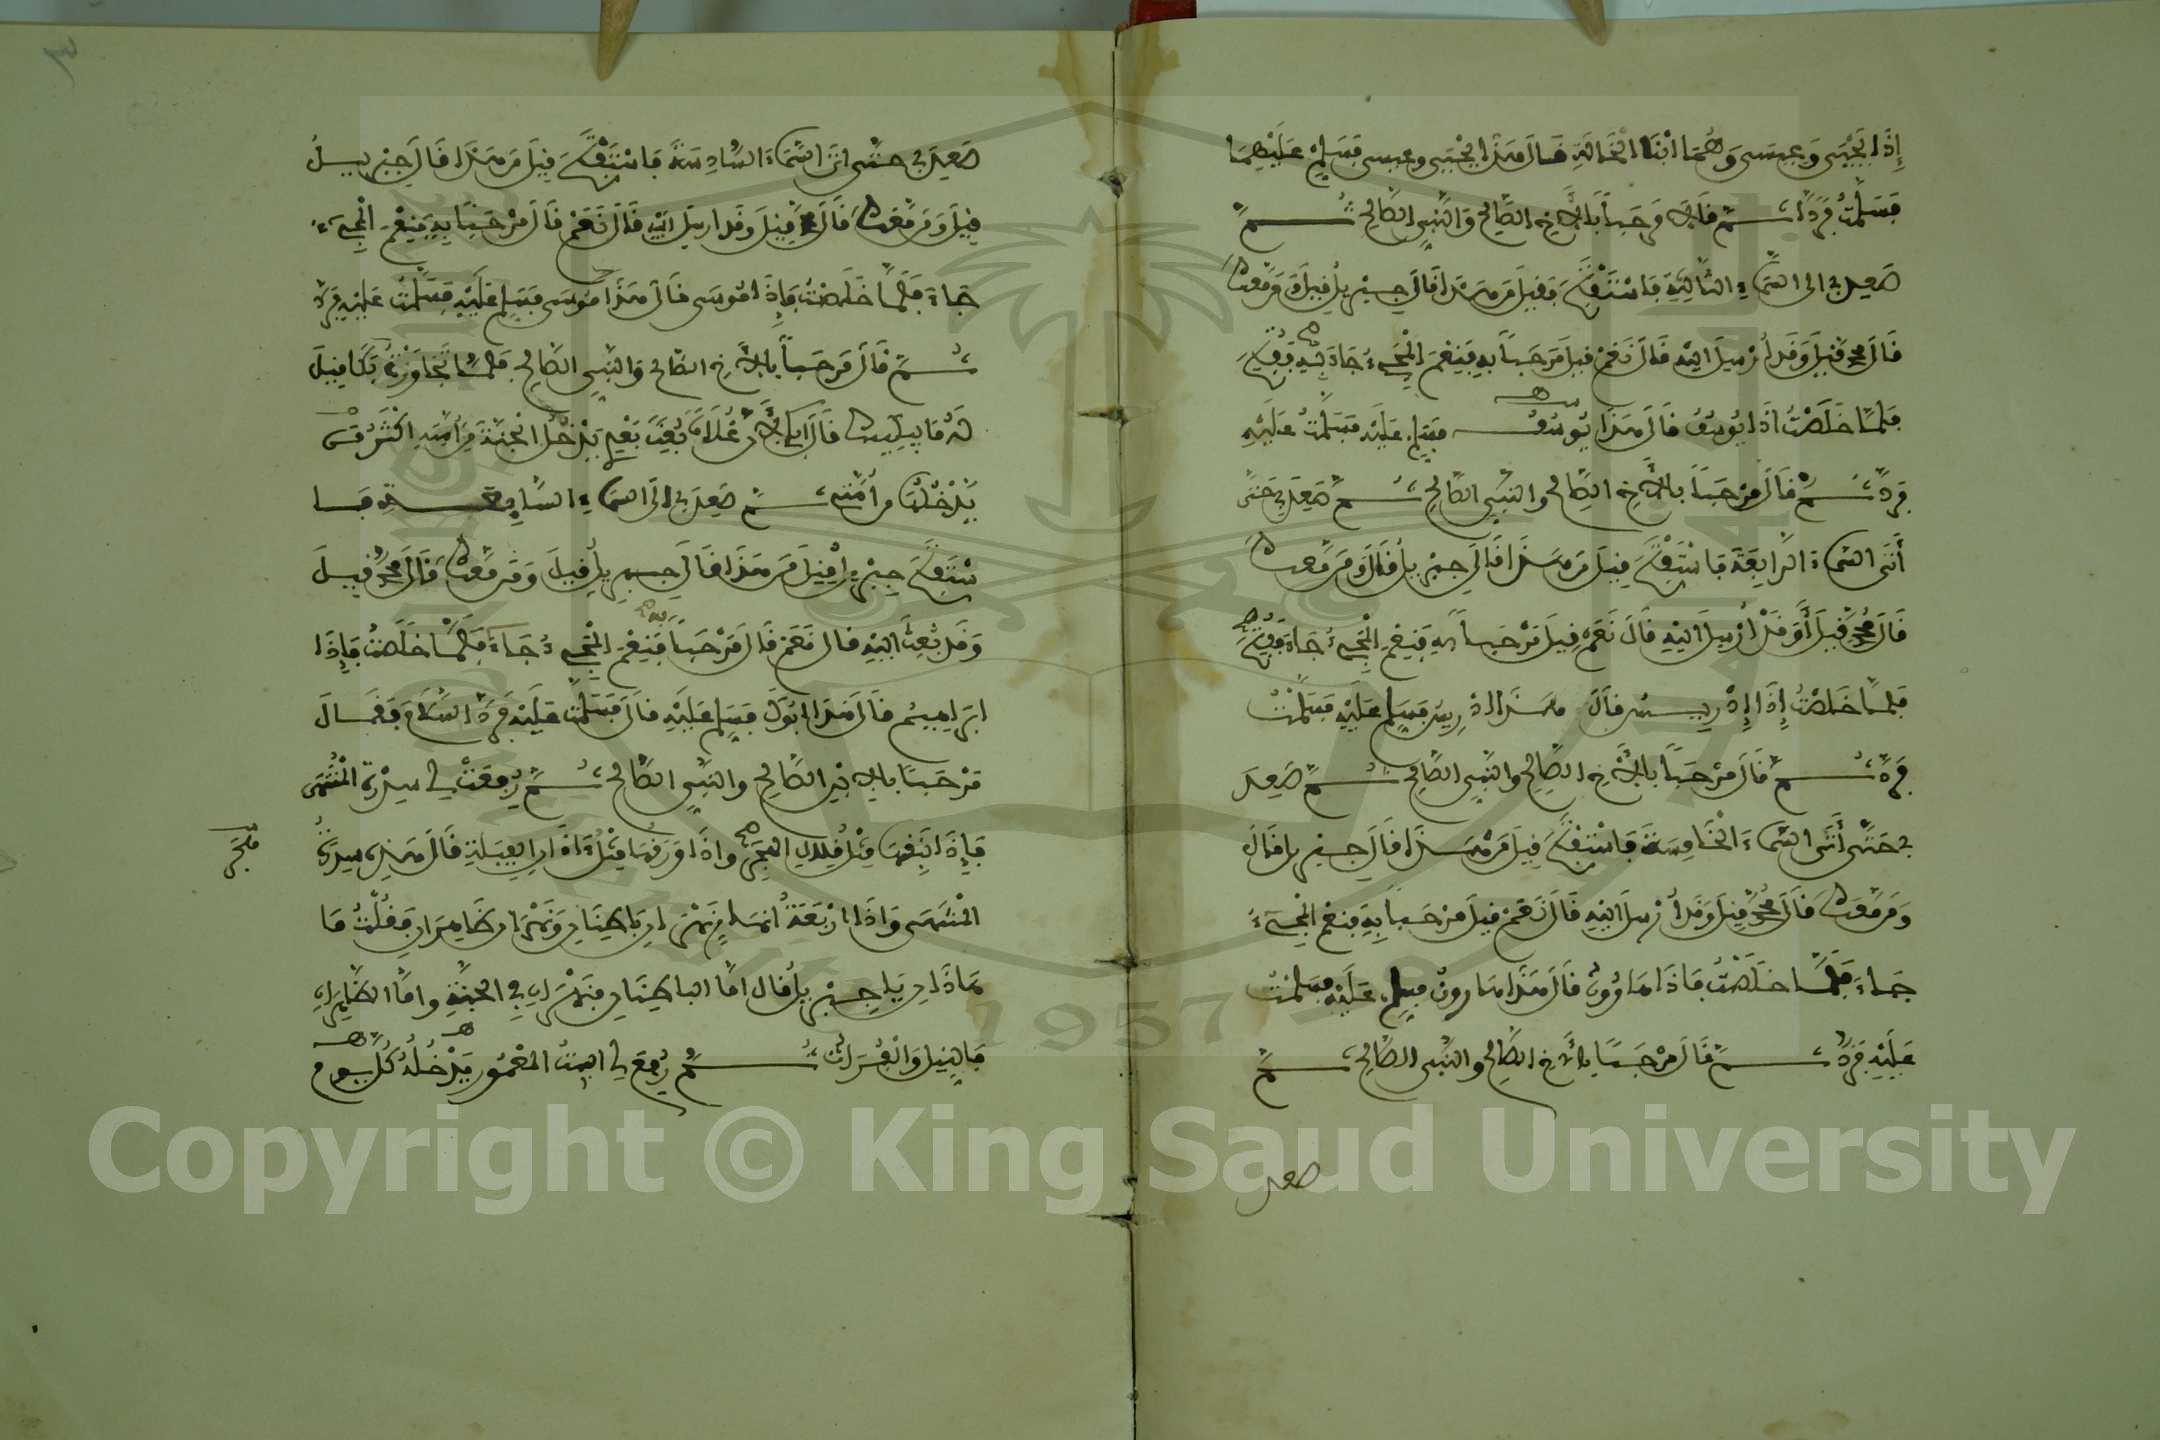 إِذَا يَحْيَى وَعِيسَى وَهُمَا ابْنَا الْخَالَةِ قَالَ هَذَا يَحْيَى وعيسى فَسَلِّمْ عَلَيْهِمَا
فَسَلَّمْتُ فَرَدَّا ثُمَّ قَالَا مَرْحَباً بِالْأَخِ الصَّالِحِ وَالنَّبِيِّ الصَّالِحِ ثُمَّ
صَعِدَ بي الى السَّمَاءِ الثَّالِثَةِ فَاسْتَفْتَحَ فَقِيلَ مَنْ هَذَا قَالَ جِبْرِيلُ قِيلَ وَمَن مَّعَكَ
قَالَ مُحَمَّدٌ قِيلَ وَقَدْ أُرْسِلَ الَيْهِ قَالَ نَعَمْ قِيلَ مَرْحَباً بِهِ فَنِعْمَ الْمَجِيءُ جَاءَ فَفُتِحَ
فَلَمَّا خَلَصْتُ اذَا يُوسُفُ قَالَ هَذَا يُوسُفُ فَسَلِّمْ عَلَيْهِ فَسَلَّمْتُ عَلَيْهِ
فَرَدَّ ثُمَّ قَالَ مَرْحَباً بِالْأَخِ الصَّالِحِ وَالنَّبِيِّ الصَّالِحِ ثُمَّ صَعِدَ بِي حَتَّى
أَتَى السَّمَاءَ الرَّابِعَةَ فَاسْتَفْتَحَ قِيلَ مَنْ هَذَا قَالَ جِبْرِيلُ قَالَ وَمَن مَّعَكَ
قَالَ مُحَمَّدٌ قِيلَ أَوَقَدْ أُرْسِلَ الَيْهِ قَالَ نَعَمْ قِيلَ مَرْحَباً بِهِ فَنِعْمَ الْمَجِيءُ جَاءَ فَفُتِحَ
فَلَمَّا خَلَصْتُ إِذَا إِدْرِيسُ قَالَ هَذَا ادْرِيسُ فَسَلِّمْ عَلَيْهِ فَسَلَّمْتُ
فَرَدَّ ثُمَّ قَالَ مَرْحَباً بِالْأَخِ الصَّالِحِ وَالنَّبِيِّ الصَّالِحِ ثُمَّ صَعِدَ
بِي حَتَّى أَتَى السَّمَاءَ الْخَامِسَةَ فَاسْتَفْتَحَ قِيلَ مَنْ هَذَا قَالَ جِبْرِيلُ قَالَ
وَمَن مَّعَكَ قَالَ مُحَمَّدٌ قِيلَ وَقَدْ أُرْسِلَ الَيْهِ قَالَ نَعَمْ قِيلَ مَرْحَباً بِهِ فَنِعْمَ الْمَجِيءُ
جَاءَ فَلَمَّا خَلَصْتُ فَاذَا هَارُونُ قَالَ هَذَا هَارُونُ فَسَلِّمْ عَلَيْهِ فَسَلَّمْتُ
عَلَيْهِ فَرَدَّ ثُمَّ قَالَ مَرْحَباً بِالْأَخِ الصَّالِحِ وَالنَّبِيِّ الصَّالِحِ ثُمَّ
صعد
صَعِدَ بِي حَتَّى اتَى السَّمَاءَ السَّادِسَةَ فَاسْتَفْتَحَ قِيلَ مَنْ هَذَا قَالَ جِبْرِيلُ
قِيلَ وَمَن مَّعَكَ قَالَ مُحَمَّدٌ قِيلَ وَقَدْ ارْسِلَ الَيْهِ قَالَ نَعَمْ قَالَ مَرْحَباً بِهِ فَنِعْمَ الْمَجِيءُ
جَاءَ فَلَمَّا خَلَصْتُ فَإِذَا مُوسَى قَالَ هَذَا مُوسَى فَسَلِّمْ عَلَيْهِ فَسَلَّمْتُ عَلَيْهِ فَرَدَّ
ثُمَّ قَالَ مَرْحَباً بِالْأَخِ الصَّالِحِ وَالنَّبِيِّ الصَّالِحِ فَلَمَّا تَجَاوَزْتُهُ بَكَا قِيلَ
لَهُ مَا يُبْكِيكَ قَالَ ابْكِي لِأَنَّ غُلَاماً بُعِثَ بَعْدِي يَدْخُلُ الْجَنَّةَ مِنْ أُمَّتِهِ اكْثَرُ مِمَّنْ
يَدْخُلُهَا مِنْ أُمَّتِي ثُمَّ صَعِدَ بِي الَى السَّمَاءِ السَّابِعَةِ فَا
سْتَفْتَحَ جِبْرِيلُ قِيلَ مَنْ هَذَا قَالَ جِبْرِيلُ قِيلَ وَمَن مَّعَكَ قَالَ مُحَمَّدٌ قِيلَ
وَقَدْ بُعِثَ الَيْهِ قَالَ نَعَمْ قَالَ مَرْحَباً به فَنِعْمَ الْمَجِيءُ جَاءَ فَلَمَّا خَلَصْتُ فَإِذَا
ابْرَاهِيمُ قَالَ هَذَا ابُوكَ فَسَلِّمْ عَلَيْهِ قَالَ فَسَلَّمْتُ عَلَيْهِ فَرَدَّ السَّلَامَ فَقَالَ
مَرْحَباً بِالابْنِ الصَّالِحِ وَالنَّبِيِّ الصَّالِحِ ثُمَّ رُفِعَتْ لِي سِدْرَةُ الْمُنْتَهَى
فَإِذَا نَبِقُهَا مِثْلُ قِلَالِ هَجَرَ وَاذَا وَرَقُهَا مِثْلُ ءَاذَانِ الْفِيَلَةِ قَالَ هَذِهِ سِدْرَةُ
الْمُنْتَهَى وَاذَا ارْبَعَةُ انْهَارٍ نَهْرَانِ بَاطِنَانِ وَنَهْرَانِ ظَاهِرَانِ فَقُلْتُ مَا
هَاذَانِ يَا جِبْرِيلُ قَالَ امَّا الْبَاطِنَانِ فَنَهْرَانِ فِي الْجَنَّةِ وَامَّا الظَّاهِرَانِ
فَالنِّيلُ وَالْفُرَاتُ ثُمَّ رُفِعَ لِي الْبَيْتُ الْمَعْمُورُ يَدْخُلُهُ كُلَّ يَوْمٍ
Copyright © King Saud University
1957